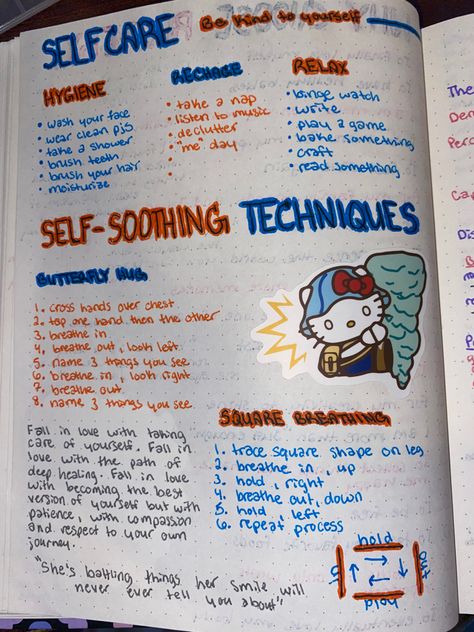 SELFCARE
Be kind to yourself
HYGIENE
• wash your face
• wear clean pjs
• take a shower
• brush teeth
• brush your hair
• moisturize
RECHAGE
• take a nap
• listen to music
• declutter
• "me" day
RELAX
• binge watch
• write
• play a game
• bake something
• craft
• read something
SELF-SOOTHING TECHNIQUES
BUTTERFLY HUG
1. cross hands over chest
2. tap one hand then the other
3. breathe in
4. breathe out, look left
5. name 3 things you see
6. breathe in, look right
7. breathe out
8. name 3 things you see
SQUARE BREATHING
1. trace square shape on leg
2. breathe in, up
3. hold, right
4. breathe out, down
5. hold, left
6. repeat process
hold
out
Fall in love with taking
care of yourself. Fall in
love with the path of
deep healing. Fall in love
with becoming the best
version of yourself but with
patience, with compassion
and respect to your own
journey.
"She's battling things her smile will
never ever tell you about"